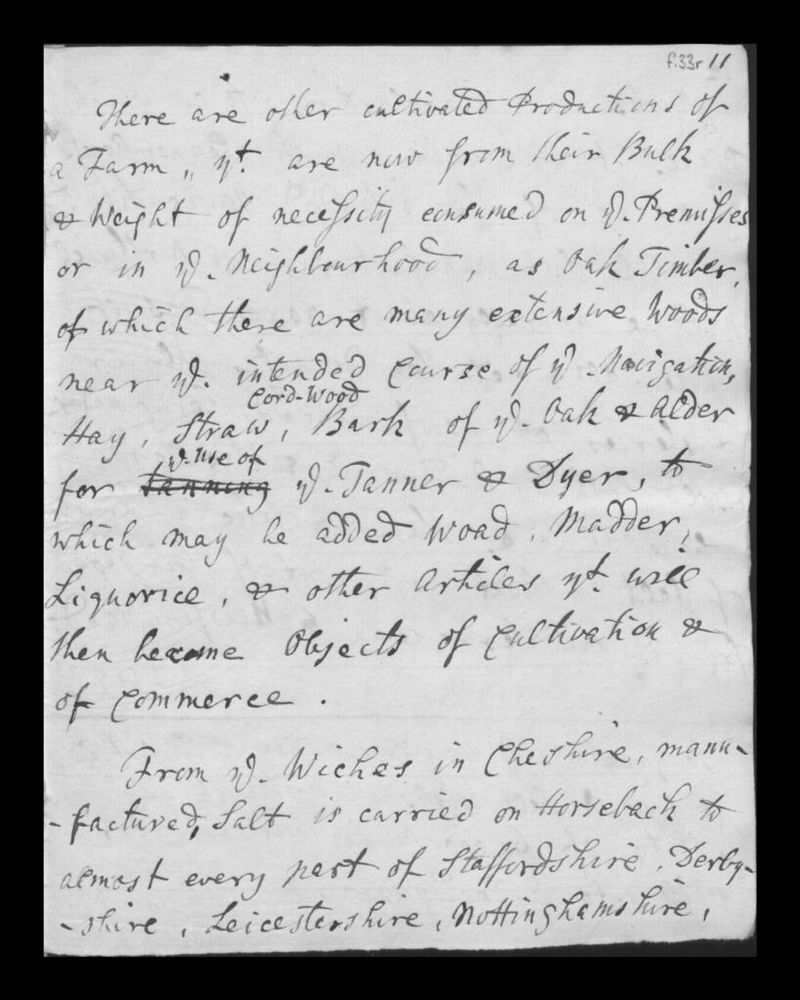 f.33r 11
There are other cultivated Productions of
a Farm, yt. are now from their Bulk
& Weight of necessity consumed on ye. Premisses
or in ye. Neighbourhood, as Oak Timber,
of which there are many extensive Woods
near ye. intended Course of ye Navigation,
Cord-Wood
Hay, Straw, Bark of ye. Oak & Alder
ye. use of
for tanning ye. Tanner & Dyer, to
which may be added Woad, Madder,
Liquorice, & other Articles yt. will
then become Objects of Cultivation &
of Commerce.
From ye. Wiches in Cheshire, manu-
-factured, Salt is carried on Horseback to
almost every part of Staffordshire, Derby-
-shire, Leicestershire, Nottinghamshire,